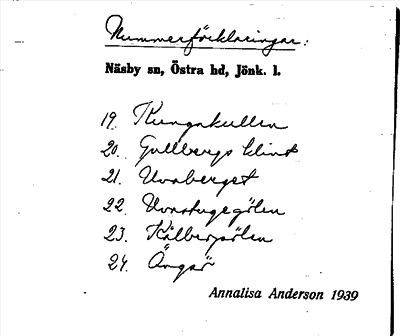 Nummerförklaringar:
Näsby sn, Östra hd, Jönk. l.
19. Kungakullen
20. Gullbergs klint
21. Uvaberget
22. Uvastugegölen
23. Kålbergsgölen
24. Ängar
Annalisa Anderson 1939